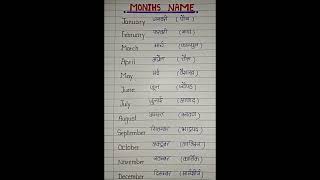 MONTHS NAME
January जनवरी (पौष)
February फरवरी (माघ)
March मार्च (फाल्गुन)
April अप्रैल (चैत्र)
May मई (वैशाख)
June जून (ज्येष्ठ)
July जुलाई (आषाढ़)
August अगस्त (श्रावण)
September सितम्बर (भाद्रपद)
October अक्टूबर (आश्विन)
November नवम्बर (कार्तिक)
December दिसम्बर (मार्गशीर्ष)